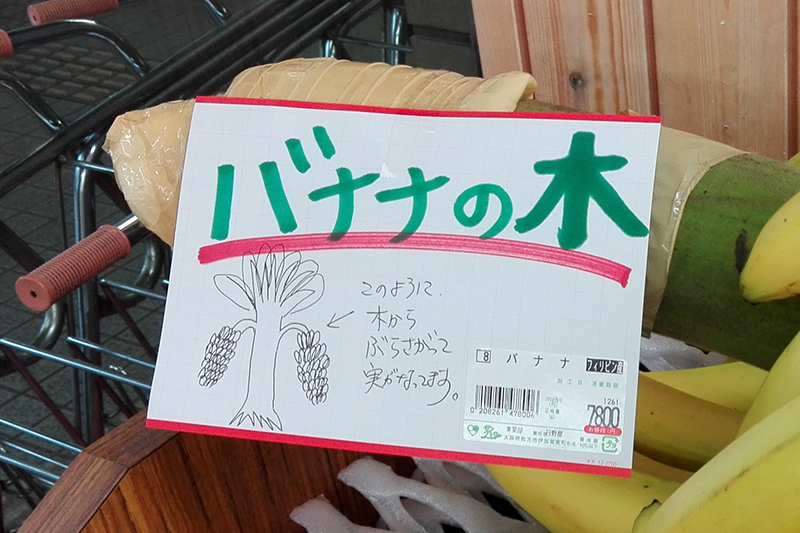 バナナの木
このように、
木から
ぶらさがって
実がなってます。
8 バナナ フィリピン産
加工日 消費期限
1261
7800
お値段(円)
0 208261 478006